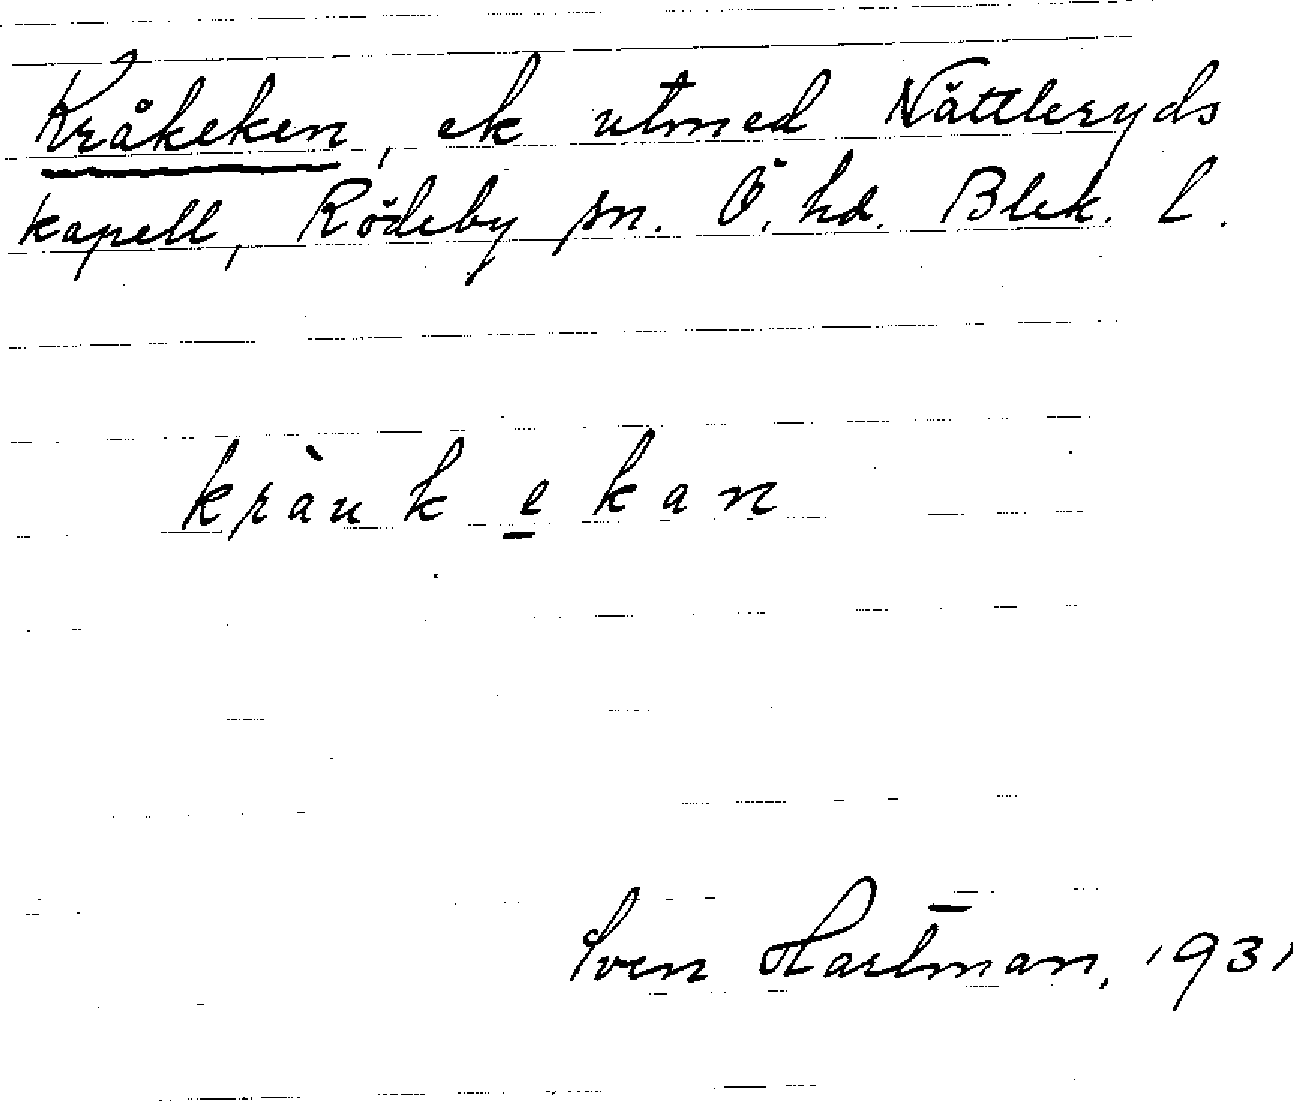 Kråkeken, ek utmed Nättleryds
kapell, Rödeby sn. Ö. hd. Blek. l.
kràuk e kan
Sven Hartman, 1931